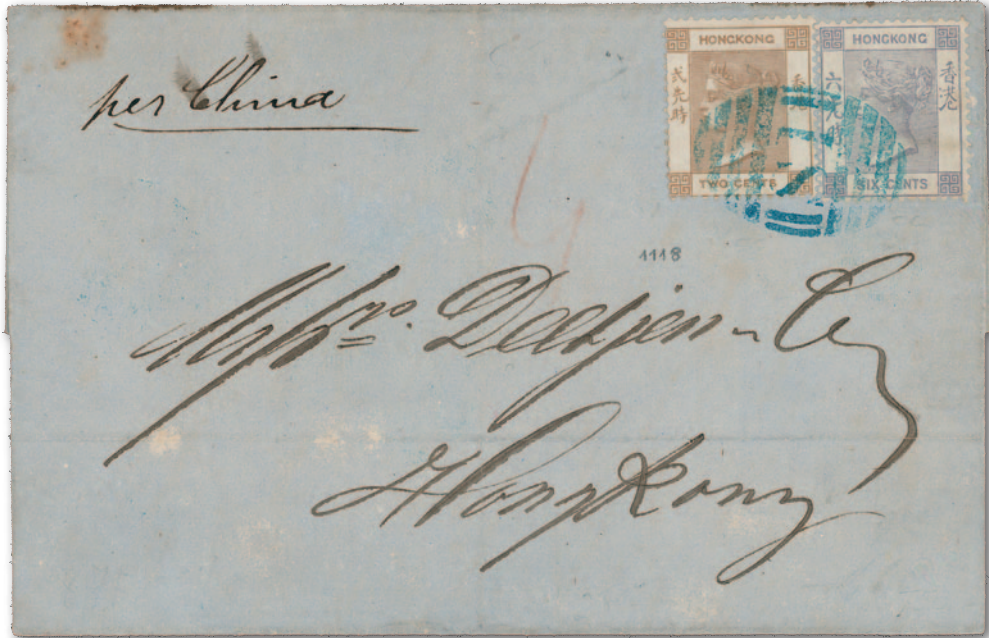 per China
HONGKONG
香港
貳先時
TWO CENTS
HONGKONG
香港
六先時
SIX CENTS
1118
Messrs. Deetjen & Co
Hongkong